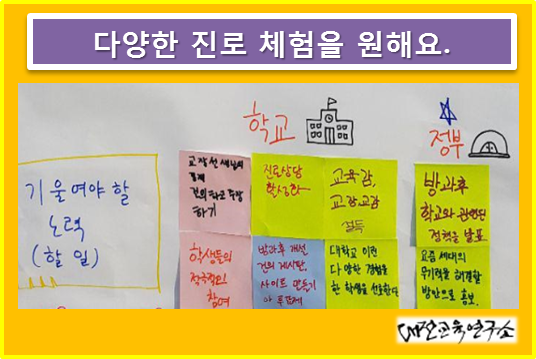 다양한 진로 체험을 원해요.
학교
정부
기울여야 할
노력
(할 일)
교장선생님의
결제
건의하고 주장
하기
진로상담
활성화
교육감,
교장,교감
설득
방과후
학교와 관련된
정책을 발포
학생들의
적극적인
참여
방과후 개선
건의 게시판,
사이트 만들기
야 투표제
대학교 이전
다양한 경험을
한 학생을 선호한다
요즘 세대의
무기력을 해결할
방안으로 홍보.
대전교육연구소